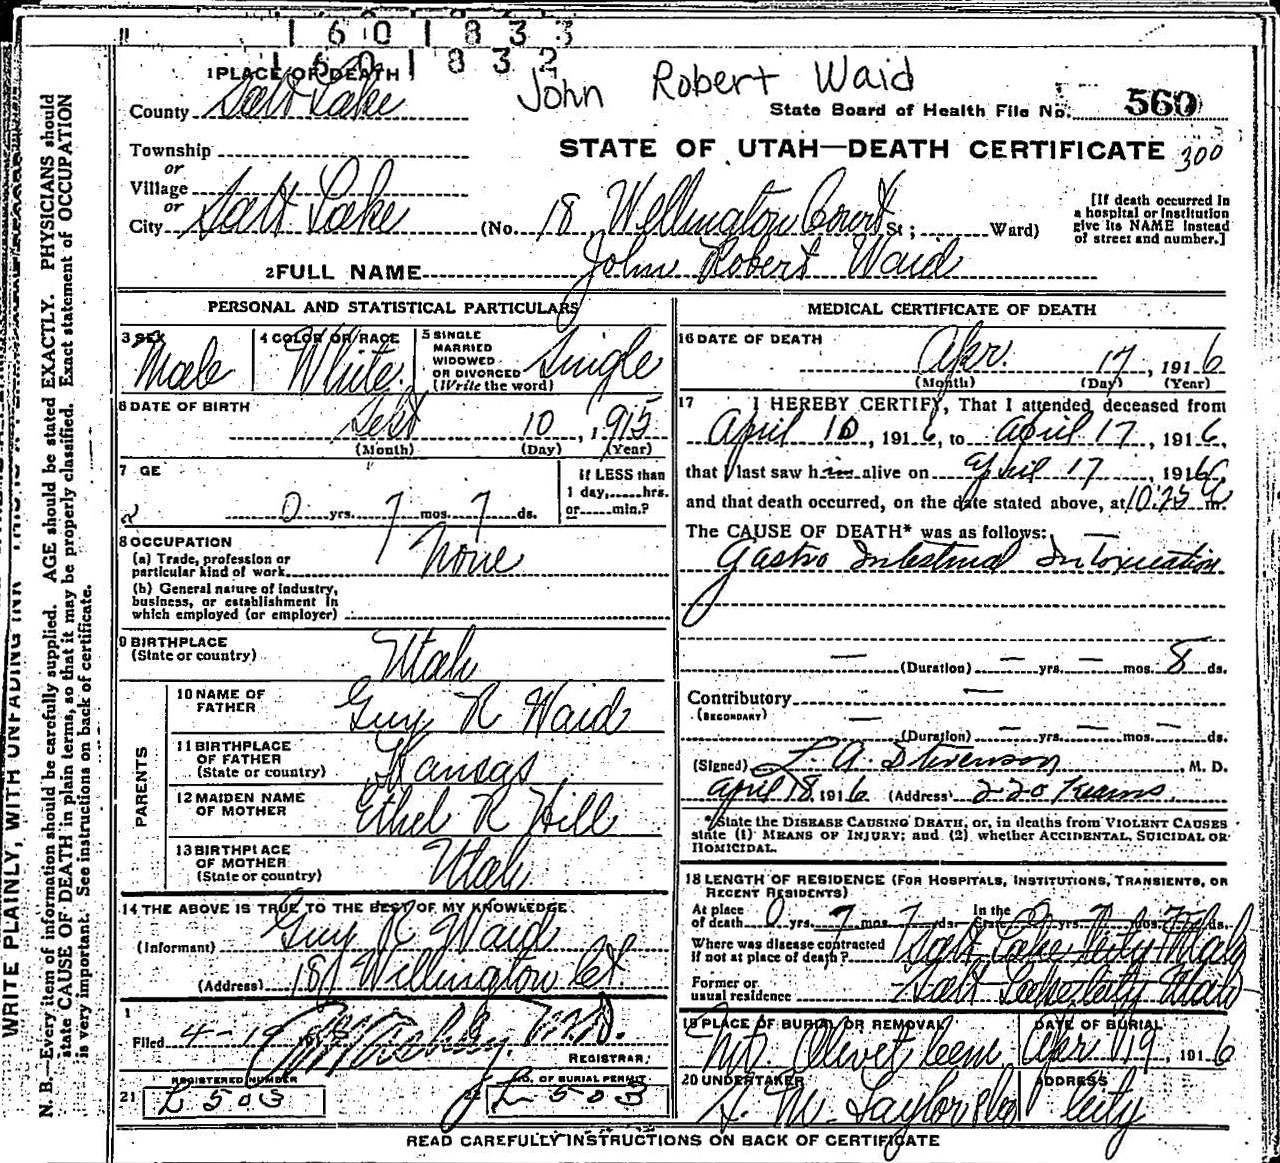 1601833
1601832
John Robert Waid
1 PLACE OF DEATH
County Salt Lake
State Board of Health File No. 560
STATE OF UTAH—DEATH CERTIFICATE 300
Township
or
Village
or
City Salt Lake (No. 18 Wellington Court St; Ward)
[If death occurred in
a hospital or institution
give its NAME instead
of street and number.]
2 FULL NAME John Robert Waid
PERSONAL AND STATISTICAL PARTICULARS
3 SEX Male
4 COLOR OR RACE White
5 SINGLE
MARRIED
WIDOWED
OR DIVORCED
(Write the word) Single
6 DATE OF BIRTH
Sept 10, 1915
(Month) (Day) (Year)
7 GE
0 yrs. 7 mos. 7 ds.
if LESS than
1 day,......hrs.
or......min.?
8 OCCUPATION
(a) Trade, profession or
particular kind of work None
(b) General nature of industry,
business, or establishment in
which employed (or employer)
9 BIRTHPLACE
(State or country) Utah
PARENTS
10 NAME OF
FATHER Guy R Waid
11 BIRTHPLACE
OF FATHER
(State or country) Kansas
12 MAIDEN NAME
OF MOTHER Ethel R Hill
13 BIRTHPLACE
OF MOTHER
(State or country) Utah
14 THE ABOVE IS TRUE TO THE BEST OF MY KNOWLEDGE
(Informant) Guy R Waid
(Address) 18 Wellington Ct
Filed 4-19 M.D.
REGISTRAR.
21 REGISTERED NUMBER
L 503
NO. OF BURIAL PERMIT
L 503
MEDICAL CERTIFICATE OF DEATH
16 DATE OF DEATH
Apr. 17, 1916
(Month) (Day) (Year)
17 I HEREBY CERTIFY, That I attended deceased from
April 10, 1916, to April 17, 1916,
that I last saw him alive on April 17 1916
and that death occurred, on the date stated above, at 10:25 a m.
The CAUSE OF DEATH* was as follows:
Gastro Intestinal Intoxication
— (Duration) — yrs. — mos. 8 ds.
Contributory —
(SECONDARY)
— (Duration) — yrs. — mos. — ds.
(Signed) L. A. Stevenson, M. D.
April 18, 1916 (Address) 220 Kearns
*State the DISEASE CAUSING DEATH, or, in deaths from VIOLENT CAUSES
state (1) MEANS OF INJURY; and (2) whether ACCIDENTAL, SUICIDAL OR
HOMICIDAL.
18 LENGTH OF RESIDENCE (FOR HOSPITALS, INSTITUTIONS, TRANSIENTS, OR
RECENT RESIDENTS)
At place
of death 0 yrs. 7 mos. 7 ds. In the
State 0 yrs. 7 mos. 7 ds.
Where was disease contracted
if not at place of death? Salt Lake City Utah
Former or
usual residence Salt Lake City Utah
19 PLACE OF BURIAL OR REMOVAL
Mt. Olivet Cem
DATE OF BURIAL
Apr 19, 1916
20 UNDERTAKER
S. M. Taylor & Co
ADDRESS
City
READ CAREFULLY INSTRUCTIONS ON BACK OF CERTIFICATE
WRITE PLAINLY, WITH UNFADING INK
N. B.—Every item of information should be carefully supplied. AGE should be stated EXACTLY. PHYSICIANS should
state CAUSE OF DEATH in plain terms, so that it may be properly classified. Exact statement of OCCUPATION
is very important. See instructions on back of certificate.